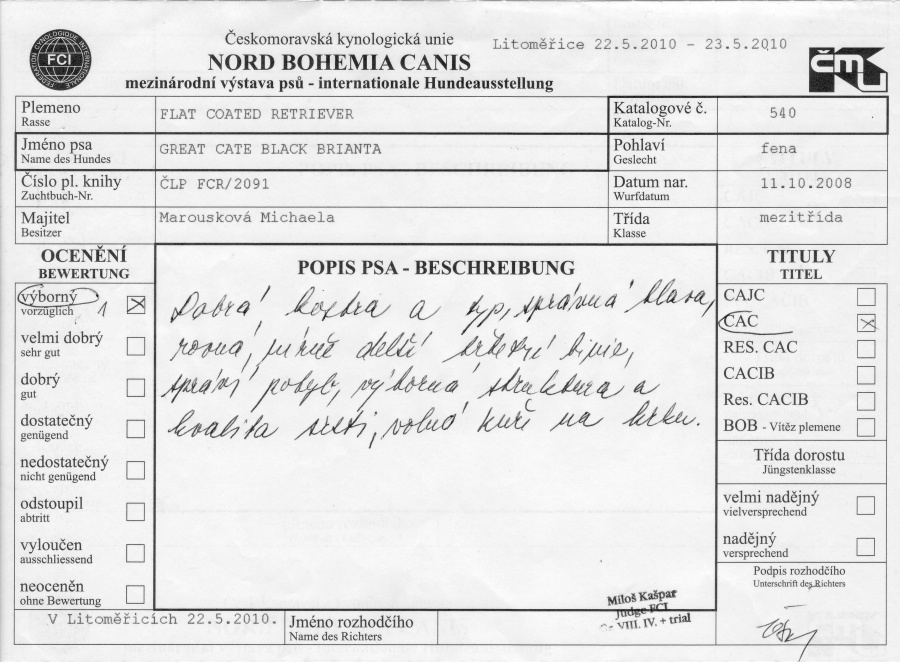 FEDERATION CYNOLOGIQUE INTERNATIONALE
FCI
Českomoravská kynologická unie
Litoměřice 22.5.2010 - 23.5.2010
NORD BOHEMIA CANIS
mezinárodní výstava psů - internationale Hundeausstellung
čmku
Plemeno
Rasse
FLAT COATED RETRIEVER
Katalogové č.
Katalog-Nr.
540
Jméno psa
Name des Hundes
GREAT CATE BLACK BRIANTA
Pohlaví
Geslecht
fena
Číslo pl. knihy
Zuchtbuch-Nr.
ČLP FCR/2091
Datum nar.
Wurfdatum
11.10.2008
Majitel
Besitzer
Marousková Michaela
Třída
Klasse
mezitřída
OCENĚNÍ
BEWERTUNG
výborný 1
vorzüglich
velmi dobrý
sehr gut
dobrý
gut
dostatečný
genügend
nedostatečný
nicht genügend
odstoupil
abtritt
vyloučen
ausschliessend
neoceněn
ohne Bewertung
POPIS PSA - BESCHREIBUNG
Dobrá kostra a typ, správná hlava,
rovná, mírně delší hřbetní linie,
správný pohyb, výborná struktura a
kvalita srsti, volná kůže na krku.
TITULY
TITEL
CAJC
CAC
RES. CAC
CACIB
Res. CACIB
BOB - Vítěz plemene
Třída dorostu
Jüngstenklasse
velmi nadějný
vielversprechend
nadějný
versprechend
Podpis rozhodčího
Unterschrift des Richters
V Litoměřicích 22.5.2010.
Jméno rozhodčího
Name des Richters
Miloš Kašpar
Judge FCI
VIII. IV. + trial